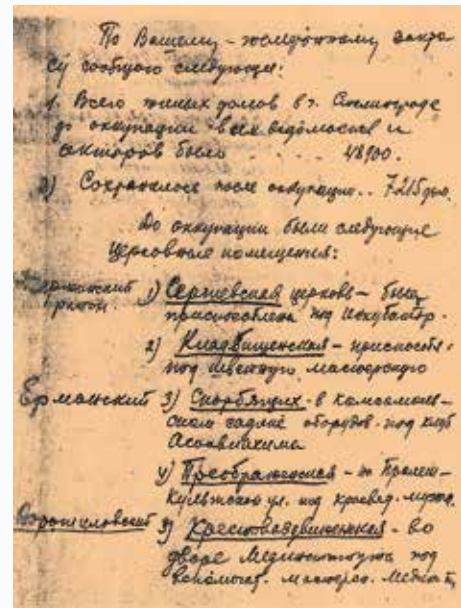 По Вашему - телефонному запро
су сообщаю следующее:
1. Всего жилых домов в г. Сталинграде
до оккупации всех ведомостей и
секторов было . . . . 48900.
2) Сохранилось после оккупации . . 7215 дом.
До оккупации были следующие
церковные помещения:
район. 1) Сергиевская церковь - была
приспособлена под инкубатор.
2) Кладбищенская - приспособ.
под швейную мастерскую
Ерманский 3) Скорбящих - в комсомоль-
ском садике оборудов. под клуб
Осоавиахима
4) Преображенская - по Пролет-
Культской ул. под краевед. музей.
Ворошиловский 5) Крестовоздвиженская - во
дворе Мединститута под
вспомогат. мастерск.